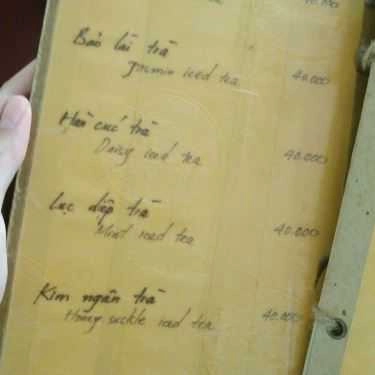 40.000
Bảo lài trà
Jasmin iced tea 40.000
Hàn cúc trà
Daisy iced tea 40.000
Lục diệp trà
Mint iced tea 40.000
Kim ngân trà
Honey suckle iced tea 40.000